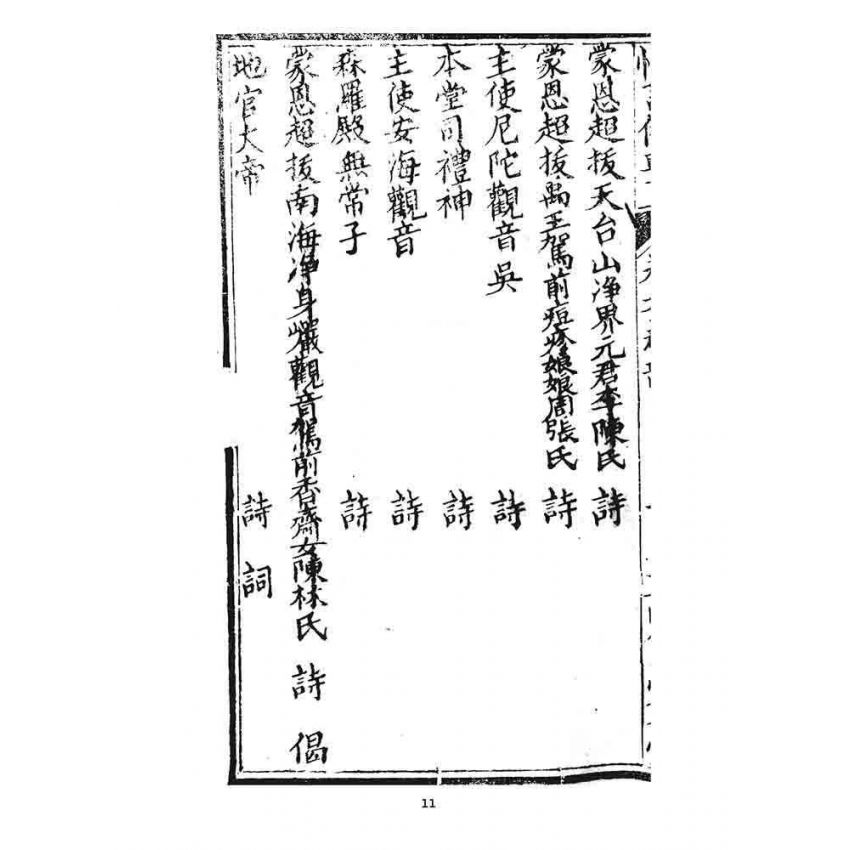 蒙恩超拔天台山淨界元君李陳氏 詩
蒙恩超拔禹王駕前痘疹娘娘周張氏 詩
主使尼陀觀音吳 詩
本堂司禮神 詩
主使安海觀音 詩
森羅殿無常子 詩
蒙恩超拔南海淨身巖觀音駕前香齋女陳林氏 詩 偈
地官大帝 詩 詞
11